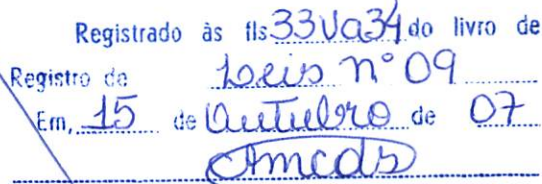 Registrado às fls 33V a 34 do livro de
Registro de Leis nº 09
Em, 15 de Outubro de 07